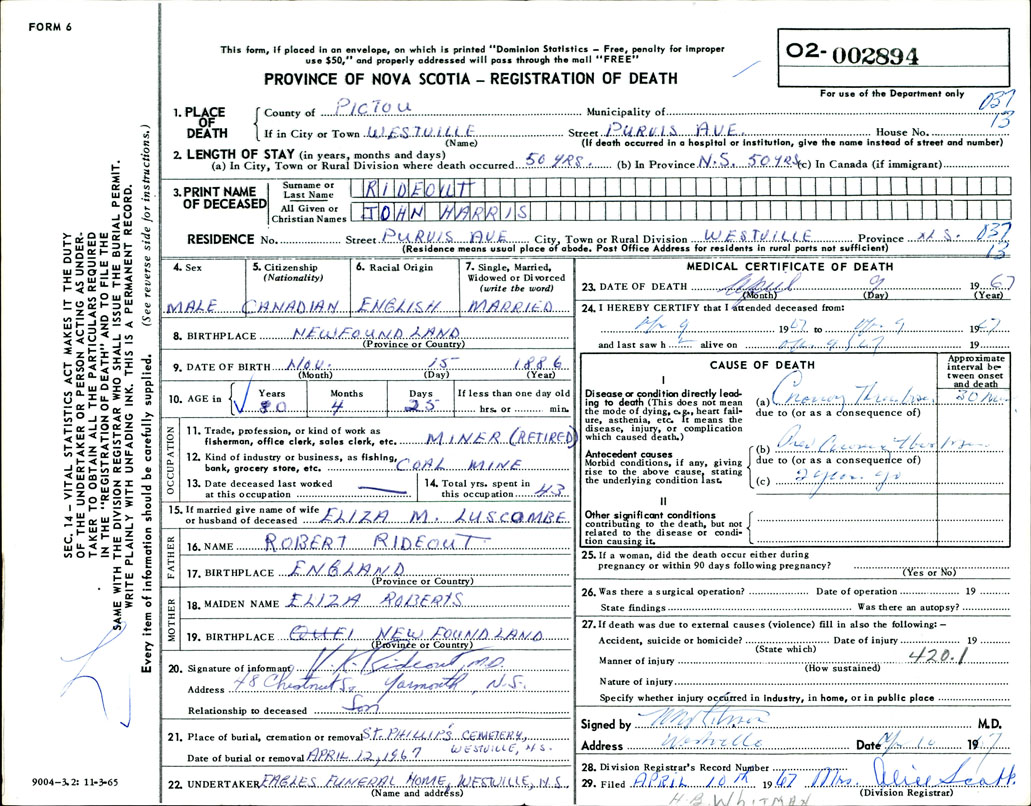 FORM 6
This form, if placed in an envelope, on which is printed "Dominion Statistics – Free, penalty for improper
use $50," and properly addressed will pass through the mail "FREE"
PROVINCE OF NOVA SCOTIA – REGISTRATION OF DEATH
02-002894
For use of the Department only
037
13
1. PLACE OF DEATH
County of PICTOU Municipality of
If in City or Town WESTVILLE Street PURVIS AVE House No.
(Name) (If death occurred in a hospital or institution, give the name instead of street and number)
2. LENGTH OF STAY (in years, months and days)
(a) In City, Town or Rural Division where death occurred 50 YRS. (b) In Province N.S. 50 YRS (c) In Canada (if immigrant)
3. PRINT NAME OF DECEASED
Surname or Last Name RIDEOUT
All Given or Christian Names JOHN HARRIS
RESIDENCE No. Street PURVIS AVE City, Town or Rural Division WESTVILLE Province N.S. 037
13
(Residence means usual place of abode. Post Office Address for residents in rural parts not sufficient)
SEC. 14 – VITAL STATISTICS ACT MAKES IT THE DUTY
OF THE UNDERTAKER OR PERSON ACTING AS UNDER-
TAKER TO OBTAIN ALL THE PARTICULARS REQUIRED
IN THE "REGISTRATION OF DEATH" AND TO FILE THE
SAME WITH THE DIVISION REGISTRAR WHO SHALL ISSUE THE BURIAL PERMIT.
WRITE PLAINLY WITH UNFADING INK. THIS IS A PERMANENT RECORD.
Every item of information should be carefully supplied. (See reverse side for instructions.)
4. Sex
MALE
5. Citizenship
(Nationality)
CANADIAN
6. Racial Origin
ENGLISH
7. Single, Married,
Widowed or Divorced
(write the word)
MARRIED
8. BIRTHPLACE NEWFOUNDLAND
(Province or Country)
9. DATE OF BIRTH NOV. 15 1886
(Month) (Day) (Year)
10. AGE in
Years 80
Months 4
Days 25
If less than one day old
hrs. or min.
OCCUPATION
11. Trade, profession, or kind of work as
fishermen, office clerk, sales clerk, etc. MINER (RETIRED)
12. Kind of industry or business, as fishing,
bank, grocery store, etc. COAL MINE
13. Date deceased last worked
at this occupation
14. Total yrs. spent in
this occupation 43
15. If married give name of wife
or husband of deceased ELIZA M. LUSCOMBE
FATHER
16. NAME ROBERT RIDEOUT
17. BIRTHPLACE ENGLAND
(Province or Country)
MOTHER
18. MAIDEN NAME ELIZA ROBERTS
19. BIRTHPLACE NEWFOUNDLAND
(Province or Country)
20. Signature of informant Rideout, M.D.
Address 48 Chestnut St. Yarmouth, N.S.
Relationship to deceased Son
21. Place of burial, cremation or removal ST. PHILLIP'S CEMETERY,
WESTVILLE, N.S.
Date of burial or removal APRIL 12, 1967
22. UNDERTAKER EAGLES FUNERAL HOME, WESTVILLE, N.S.
(Name and address)
9004-3.2: 11-3-65
MEDICAL CERTIFICATE OF DEATH
23. DATE OF DEATH April 9 1967
(Month) (Day) (Year)
24. I HEREBY CERTIFY that I attended deceased from:
Apr 9 1967 to Apr. 9 1967
and last saw h alive on Apr. 9 1967 19
CAUSE OF DEATH
Approximate
interval be-
tween onset
and death
I
Disease or condition directly lead-
ing to death (This does not mean
the mode of dying, e.g., heart fail-
ure, asthenia, etc. It means the
disease, injury, or complication
which caused death.)
(a) Coronary Thrombosis 30
due to (or as a consequence of)
Antecedent causes
Morbid conditions, if any, giving
rise to the above cause, stating
the underlying condition last.
(b) Prev Coronary Thrombosis
due to (or as a consequence of)
(c) 2 years ago
II
Other significant conditions
contributing to the death, but not
related to the disease or condi-
tion causing it.
25. If a woman, did the death occur either during
pregnancy or within 90 days following pregnancy?
(Yes or No)
26. Was there a surgical operation? Date of operation 19
State findings Was there an autopsy?
27. If death was due to external causes (violence) fill in also the following: –
Accident, suicide or homicide? Date of injury 19
(State which)
Manner of injury 420.1
(How sustained)
Nature of injury
Specify whether injury occurred in industry, in home, or in public place
Signed by M.D.
Address Westville Date Apr 10 1967
28. Division Registrar's Record Number
29. Filed APRIL 10TH 1967 Mrs. Alice Scott
(Division Registrar)
H.B. WHITMAN